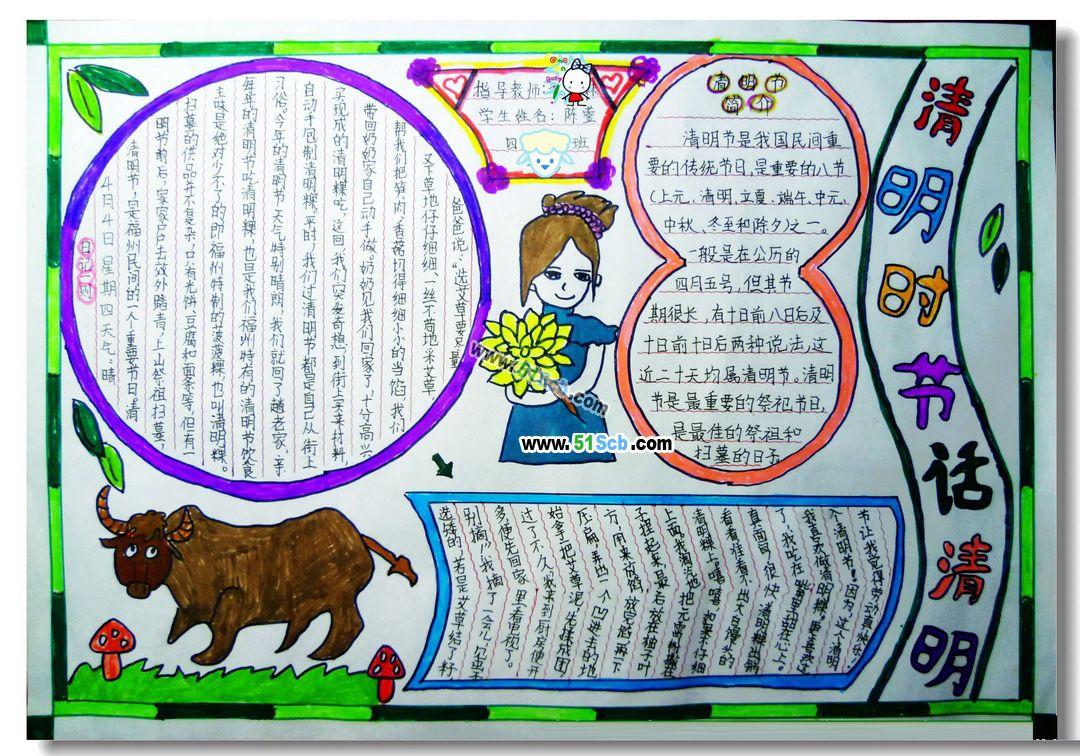 清明时节话清明
指导教师:
学生姓名:陈雯
四 班
日记一则
4月4日 星期四 天气:晴
清明节,是福州民间的一个重要节日。清
明节前后,家家户户去效外踏青,上山祭祖扫墓,
扫墓的供品并不复杂,只有光饼、豆腐和面条等,但有一
主味是绝对少不了的即福州特制的菠菠粿,也叫清明粿。
每年的清明节吃清明粿,也是我们福州特有的清明节饮食
习俗。今年的清明节天气特别晴朗,我们就回了趟老家,亲
自动手包制清明粿。平时,我们过清明节都是自己从街上
买现成的清明粿吃,这回,我们突发奇想,到街上买来材料,
带回奶奶家自己动手做。奶奶见我们回家了,十分高兴
帮我们把笋肉、香菇切得细细小小的当馅,我们
又下草地仔仔细细、一丝不苟地采艾草
爸爸说:“选艾草要尽量
选矮的,若是艾草结了籽
别摘。”我摘了一会儿,见虫子
多便先回家里看电视了。
过了不久,我来到厨房便开
始拿了把艾草泥,先揉成团
压扁,弄出一个凹进去的地
方,用来放馅,放完馅,再一下
子捏起来,最后放在粽子叶
上面。我淘气地把元宵粉搓在
清明粿。嘻嘻,如果不仔细
看看 不出大白馒头的
真面目!很快,清明粿出锅
了,我吃在嘴里甜在心上。
我喜欢做清明粿,更喜欢过
个清明节!因为这个清明
节让我觉得劳动真快乐!
清明节
简介
清明节是我国民间重
要的传统节日,是重要的八节
(上元、清明、立夏、端午、中元、
中秋、冬至和除夕)之一。
一般是在公历的
四月五号,但其节
期很长,有十日前八日后及
十日前十日后两种说法,这
近二十天均属清明节。清明
节是最重要的祭祀节日,
是最佳的祭祖和
扫墓的日子
www.51Scb.com